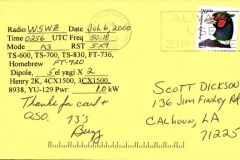 Radio W5WZ Date Jul 6, 2000
Time 0256 UTC Freq 50.18
Mode A3 RST 5x9
TS-600, TS-700, TS-830, FT-736,
Homebrew FT-920
Dipole, 5el yagi X 2
Henry 2K, 4CX1500, 3CX1500,
8938, YU-129 Pwr 1.0 kW
Thanks for card &
QSO. 73's
SCOTT DICKSON
136 Jim Finley Rd
CALHOUN, LA
71225
ALWAYS
USE
ZIP